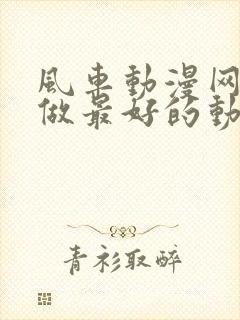 風车動漫网
做最好的動
青衫取醉